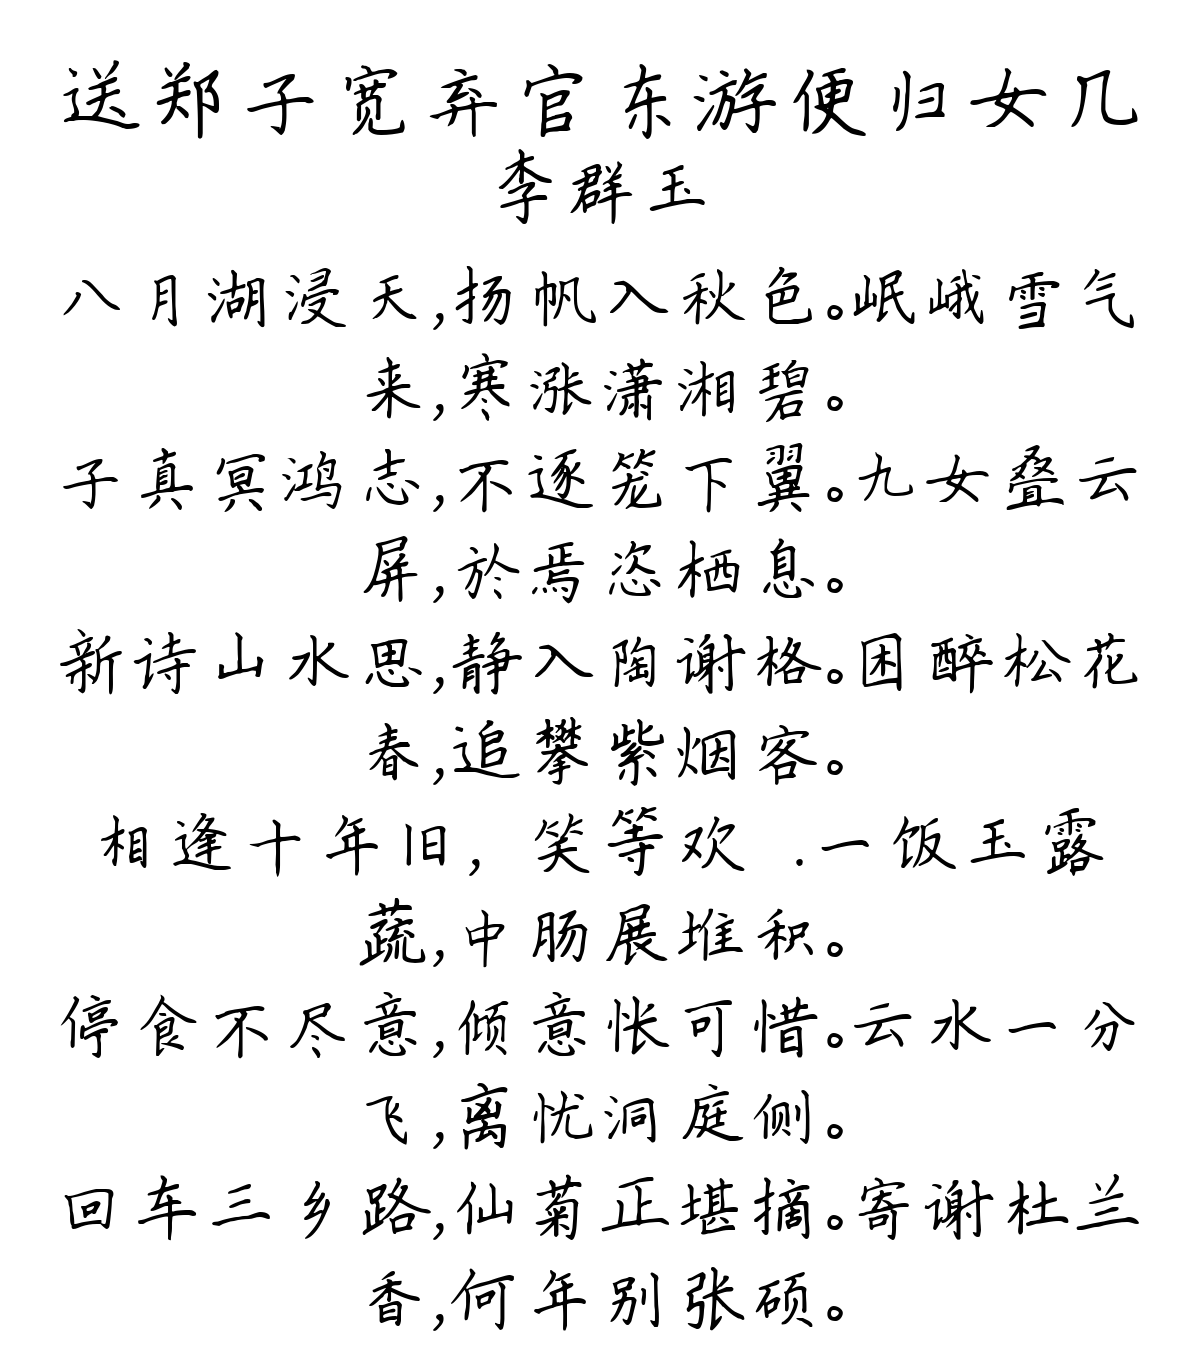 送郑子宽弃官东游便归女几
李群玉
八月湖浸天,扬帆入秋色。岷峨雪气
来,寒涨潇湘碧。
子真冥鸿志,不逐笼下翼。九女叠云
屏,於焉恣栖息。
新诗山水思,静入陶谢格。困醉松花
春,追攀紫烟客。
相逢十年旧,笑等欢 .一饭玉露
蔬,中肠展堆积。
停食不尽意,倾意怅可惜。云水一分
飞,离忧洞庭侧。
回车三乡路,仙菊正堪摘。寄谢杜兰
香,何年别张硕。